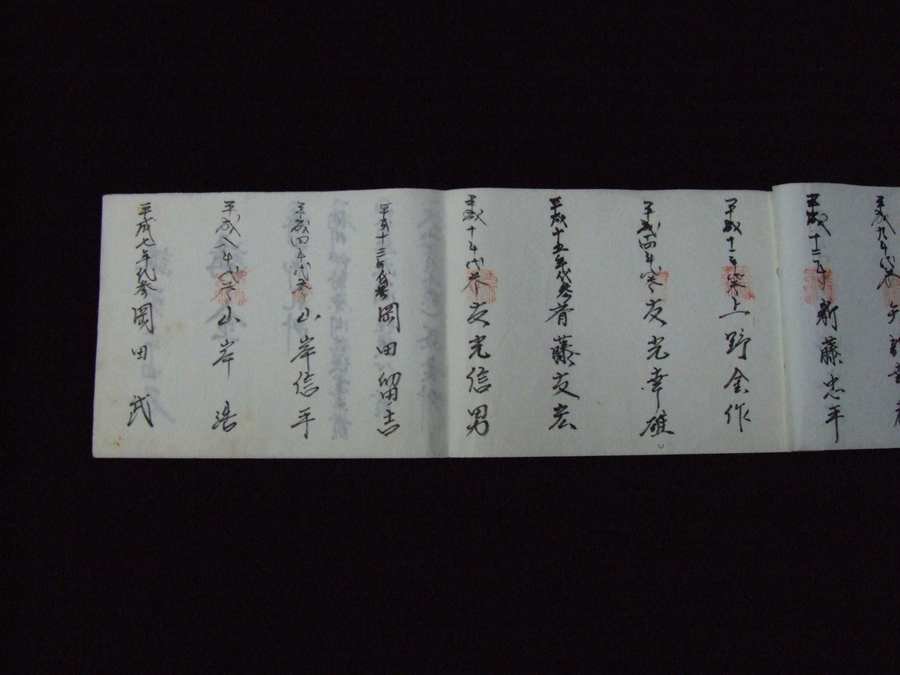 平成九年代参
平成十二年 新藤忠平
平成十一年 上野金作
平成十四年代参 友光幸雄
平成十五年代参 斉藤友宏
平成十年代参 友光信男
平成十三年代参 岡田留吉
平成四年代参 山岸信平
平成八年代参 山岸 浩
平成七年代参 岡田 武